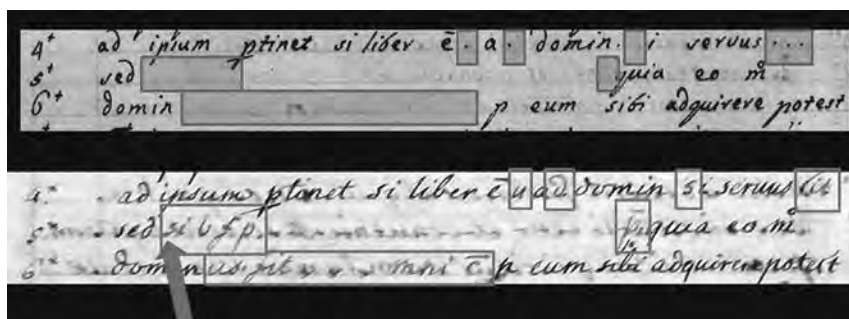 4+ ad ipsum ptinet si liber ē . a . domin . i servus . . .
5+ sed quia eo m̊
6+ domin p eum sibi adquirere potest
4+ ad ipsum ptinet si liber ē u ad domin si servus sit
5+ sed si v f p quia eo m̊
6+ domin us sit omni c̄ p eum sibi adquirere potest